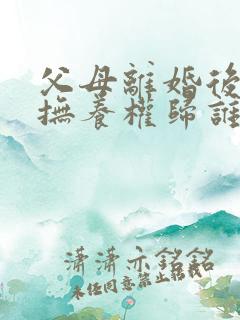 父母離婚後
撫養權歸誰
瀟瀟亦銘銘
未经同意禁止転載